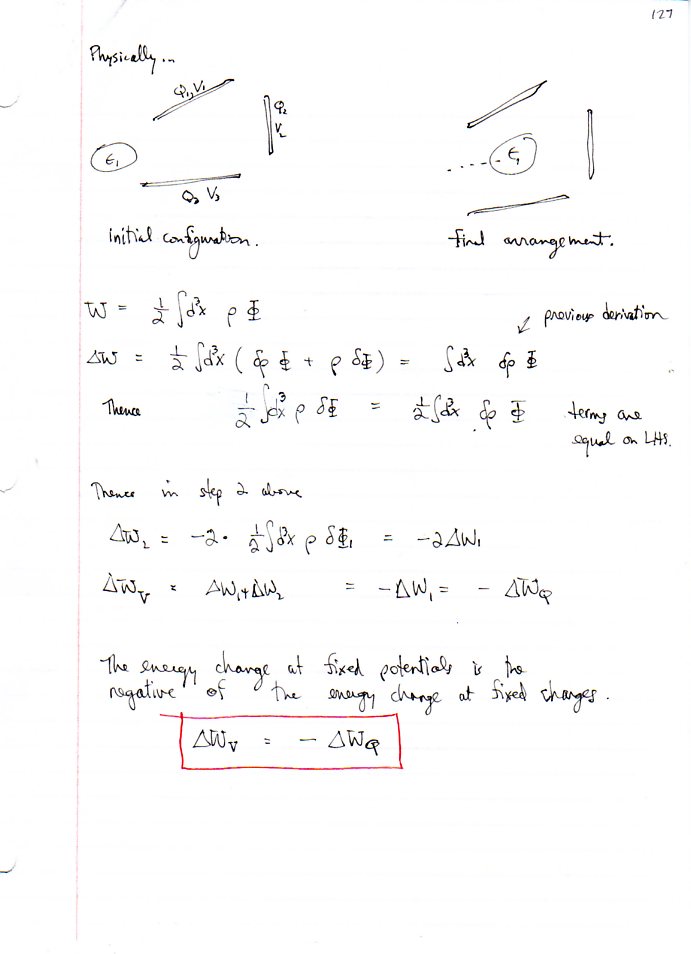 127
Physically...
Q₁, V₁
Q₂
V₂
ε₁
Q₃ V₃
ε₁
initial configuration.
final arrangement.
W = ½ ∫d³x ρ Φ
↙ previous derivation
ΔW = ½ ∫d³x ( δρ Φ + ρ δΦ ) = ∫d³x δρ Φ
Thence ½ ∫dx³ ρ δΦ = ½ ∫d³x δρ Φ terms are
equal on LHS.
Thence in step 2 above
ΔW₂ = -2 · ½ ∫d³x ρ δΦ₁ = -2ΔW₁
ΔW_V = ΔW₁+ΔW₂ = -ΔW₁ = - ΔW_Q
The energy change at fixed potentials is the
negative of the energy change at fixed charges.
ΔW_V = - ΔW_Q